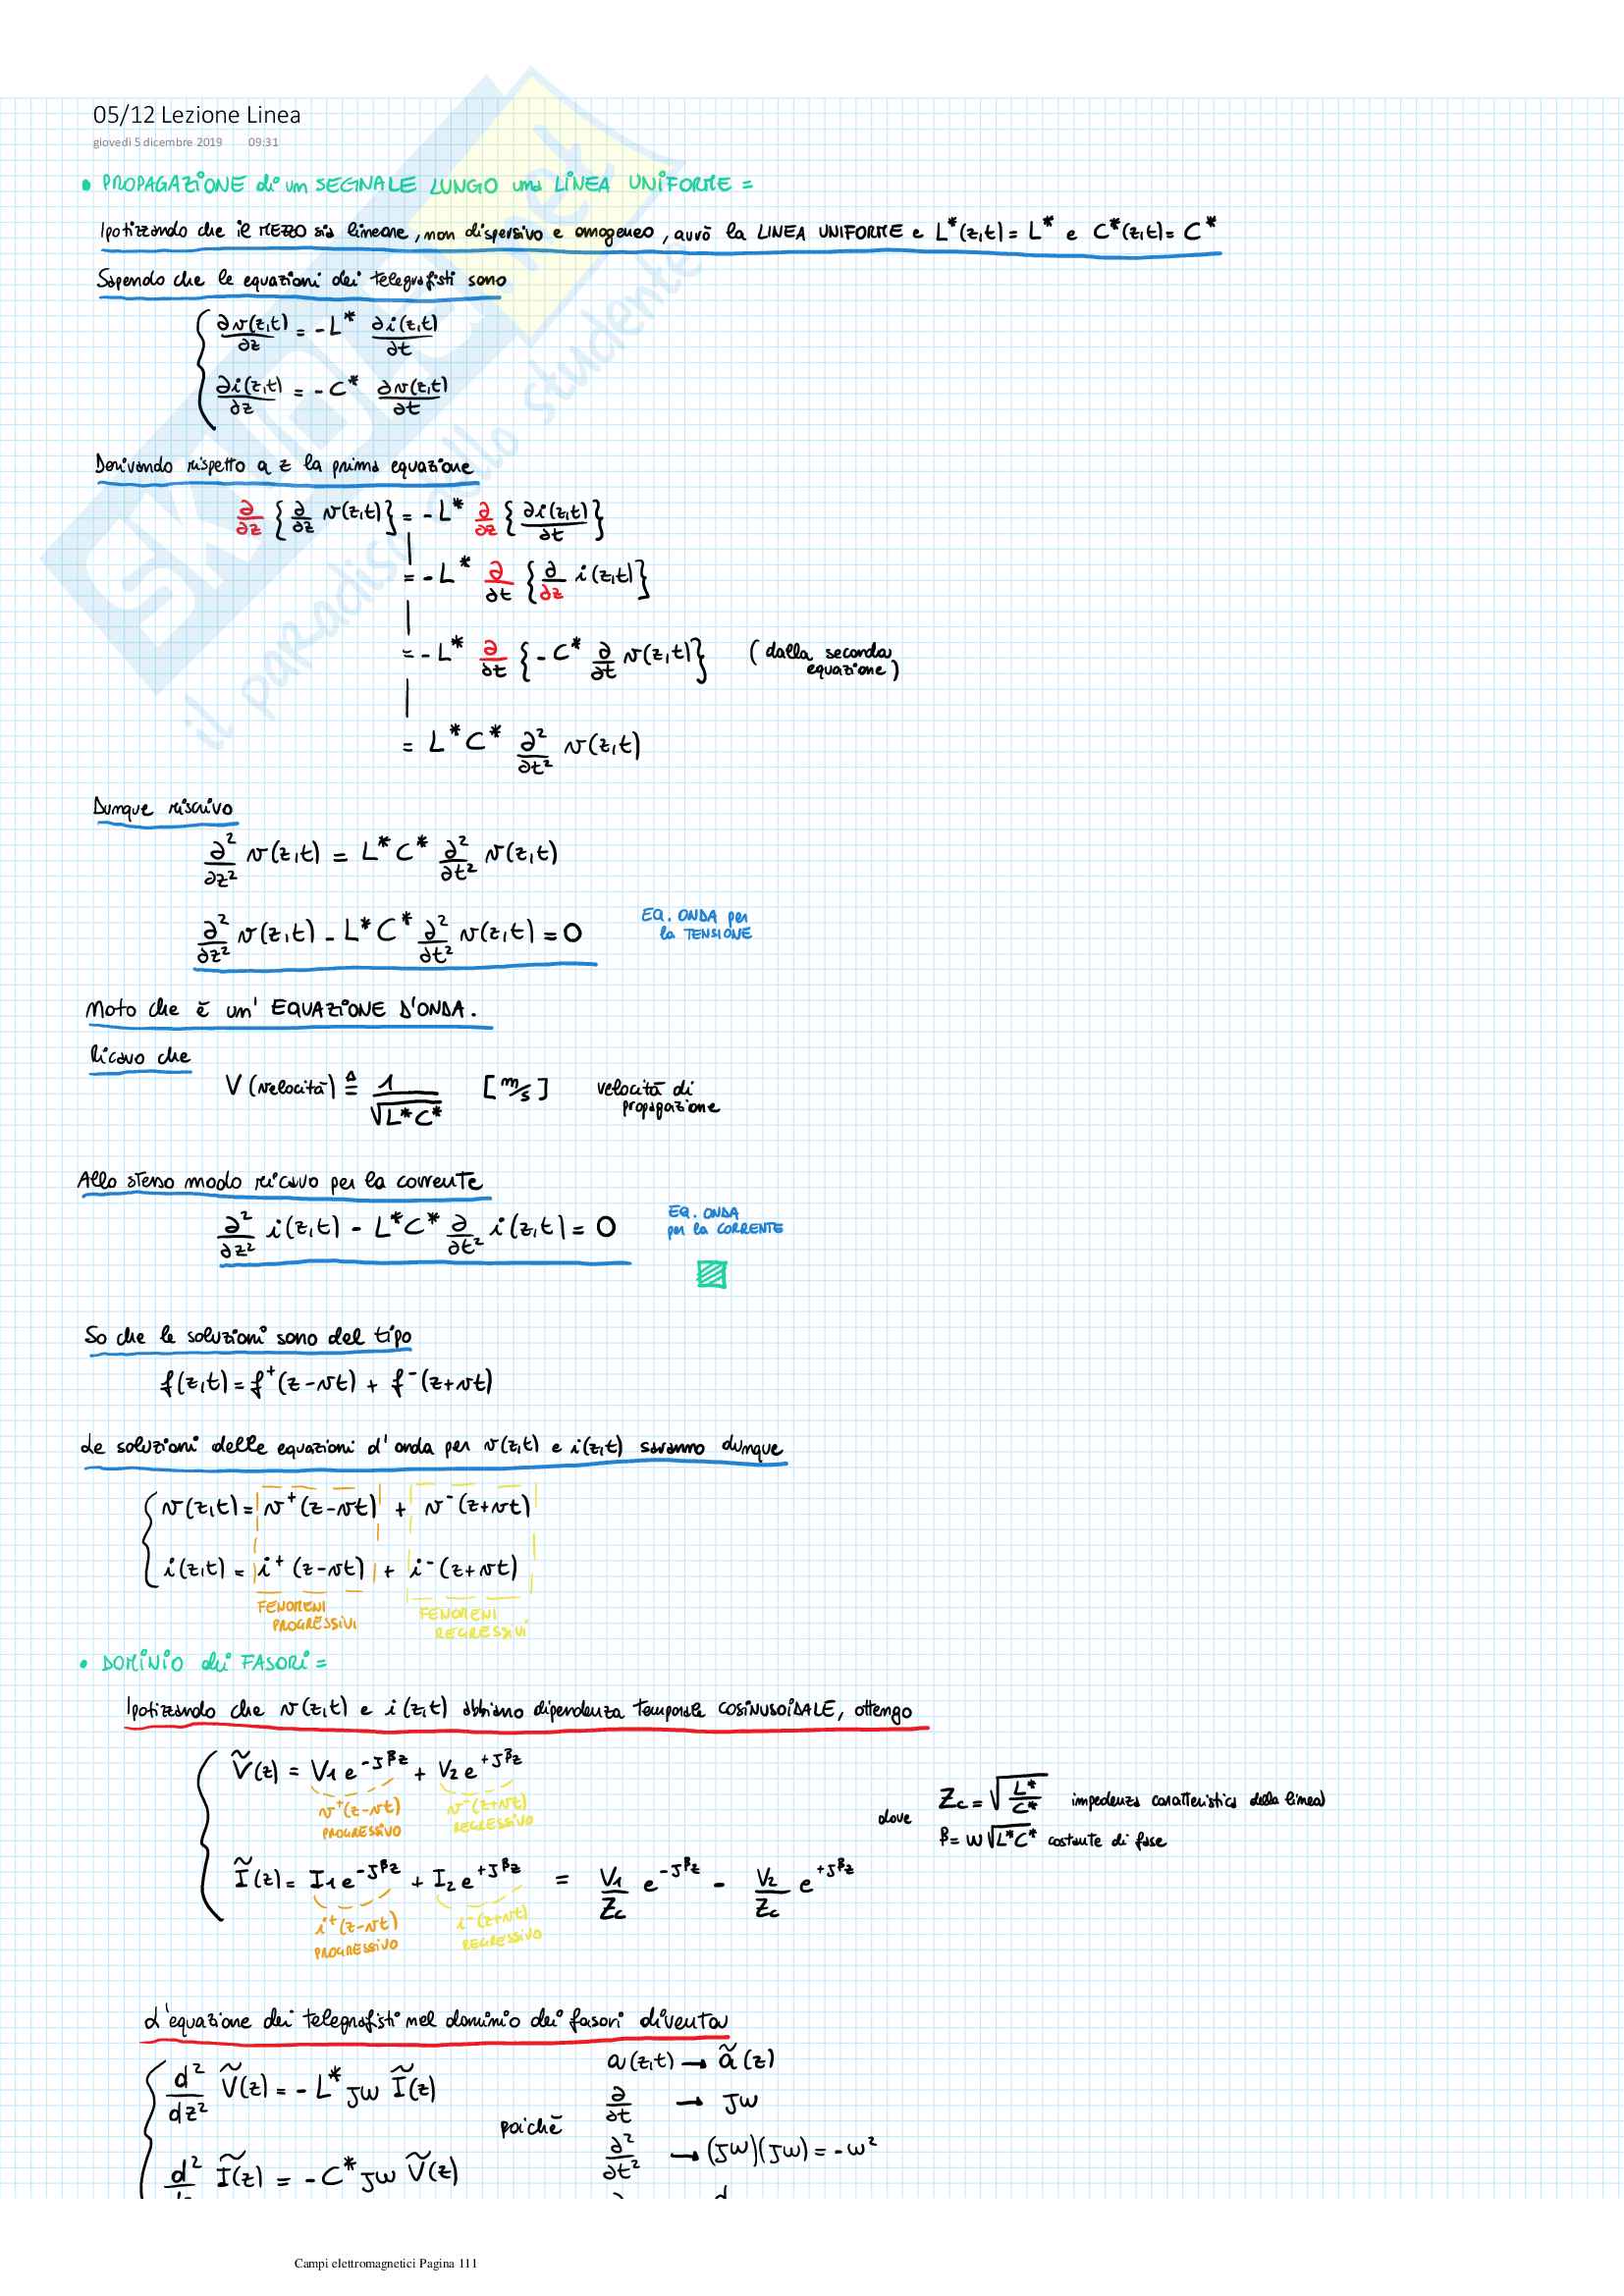 05/12 Lezione Linea
giovedì 5 dicembre 2019 09:31
• PROPAGAZIONE di un SEGNALE LUNGO una LINEA UNIFORME =
Ipotizzando che il MEZZO sia lineare, non dispersivo e omogeneo, avrò la LINEA UNIFORME e L*(z,t) = L* e C*(z,t) = C*
Sapendo che le equazioni dei telegrafisti sono
∂v(z,t)/∂z = -L* ∂i(z,t)/∂t
∂i(z,t)/∂z = -C* ∂v(z,t)/∂t
Derivando rispetto a z la prima equazione
∂/∂z {∂/∂z v(z,t)} = -L* ∂/∂z {∂i(z,t)/∂t}
= -L* ∂/∂t {∂/∂z i(z,t)}
= -L* ∂/∂t {-C* ∂/∂t v(z,t)} (dalla seconda
equazione)
= L*C* ∂²/∂t² v(z,t)
Dunque riscrivo
∂²/∂z² v(z,t) = L*C* ∂²/∂t² v(z,t)
∂²/∂z² v(z,t) - L*C* ∂²/∂t² v(z,t) = 0 EQ. ONDA per
la TENSIONE
Noto che è un' EQUAZIONE D'ONDA.
Ricavo che
V (velocità) ≜ 1/√(L*C*) [m/s] velocità di
propagazione
Allo stesso modo ricavo per la corrente
∂²/∂z² i(z,t) - L*C* ∂/∂t² i(z,t) = 0 EQ. ONDA
per la CORRENTE
So che le soluzioni sono del tipo
f(z,t) = f⁺(z-vt) + f⁻(z+vt)
Le soluzioni delle equazioni d'onda per v(z,t) e i(z,t) saranno dunque
v(z,t) = v⁺(z-vt) + v⁻(z+vt)
i(z,t) = i⁺(z-vt) + i⁻(z+vt)
FENOMENI PROGRESSIVI FENOMENI REGRESSIVI
• DOMINIO dei FASORI =
Ipotizzando che v(z,t) e i(z,t) abbiano dipendenza temporale COSINUSOIDALE, ottengo
Ṽ(z) = V1 e^(-Jβz) + V2 e^(+Jβz)
v⁺(z-vt) PROGRESSIVO v⁻(z+vt) REGRESSIVO
dove Zc = √(L*/C*) impedenza caratteristica della linea
β = ω√(L*C*) costante di fase
Ĩ(z) = I1 e^(-Jβz) + I2 e^(+Jβz) = V1/Zc e^(-Jβz) - V2/Zc e^(+Jβz)
i⁺(z-vt) PROGRESSIVO i⁻(z+vt) REGRESSIVO
L'equazione dei telegrafisti nel dominio dei fasori diventa
d²/dz² Ṽ(z) = -L* Jω Ĩ(z)
d² Ĩ(z) = -C* Jω Ṽ(z)
poichè
a(z,t) → ã(z)
∂/∂t → Jω
∂²/∂t² → (Jω)(Jω) = -ω²
Campi elettromagnetici Pagina 111
SKUOLA.net
il paradiso dello studente